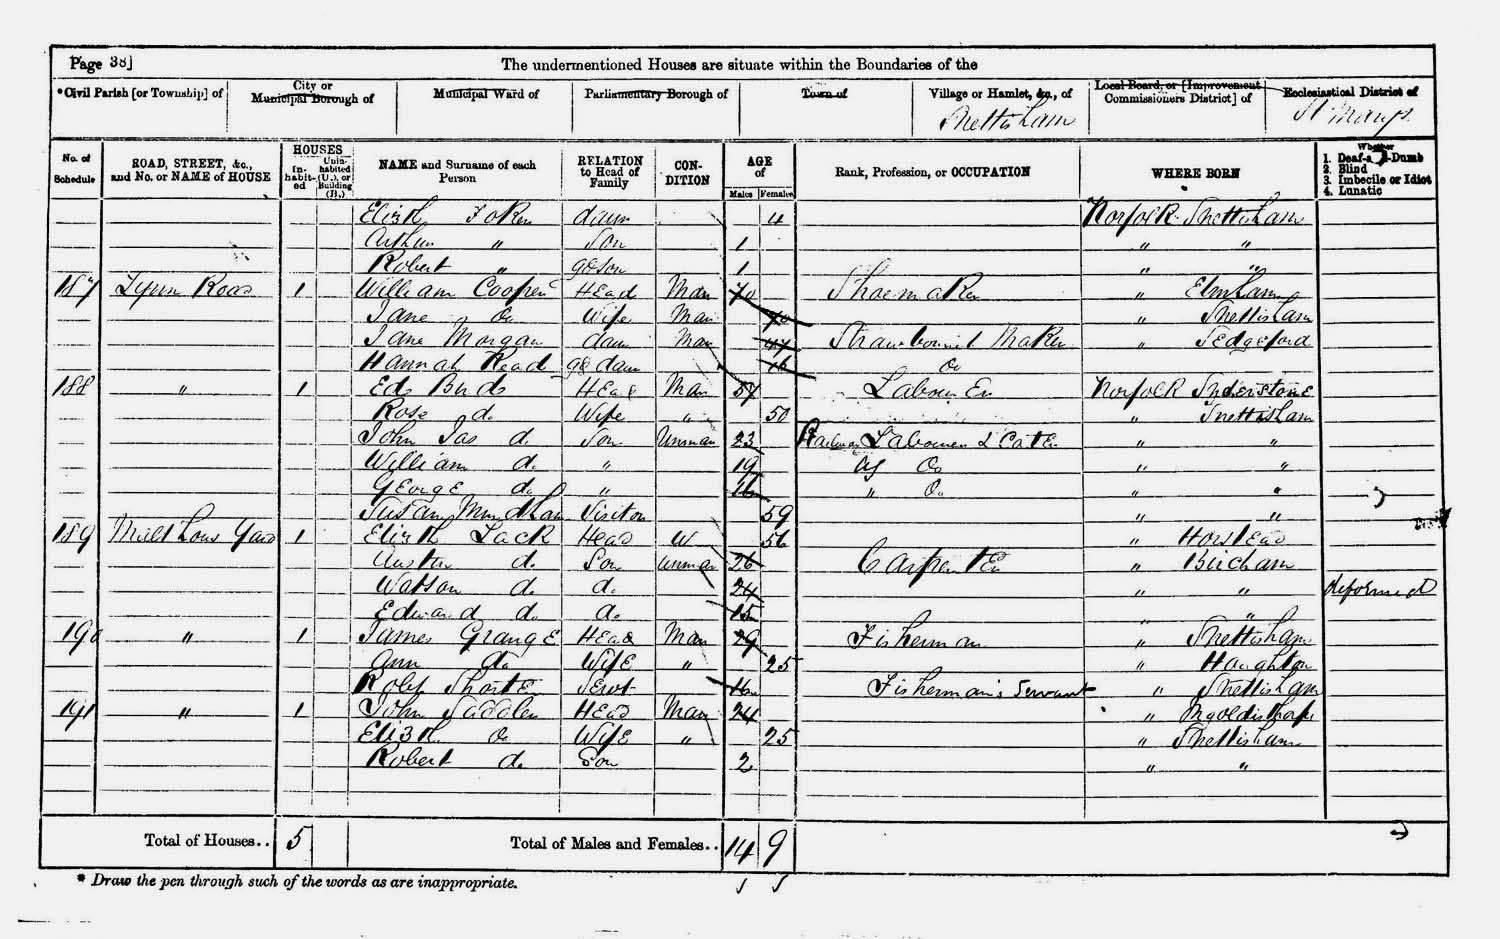 Page 38]
The undermentioned Houses are situate within the Boundaries of the
*Civil Parish [or Township] of
City or Municipal Borough of
Municipal Ward of
Parliamentary Borough of
Town of
Village or Hamlet, &c., of
Local Board, or [Improvement Commissioners District] of
Ecclesiastical District of
Snettisham
St Marys
No. of Schedule
ROAD, STREET, &c., and No. or NAME of HOUSE
HOUSES
In-habit-ed
Unin-habited (U.), or Building (B.)
NAME and Surname of each Person
RELATION to Head of Family
CON-DITION
AGE of
Males
Females
Rank, Profession, or OCCUPATION
WHERE BORN
Whether
1. Deaf-and-Dumb
2. Blind
3. Imbecile or Idiot
4. Lunatic
Elizth daur 4 Norfolk Snettisham
Arthur " Son 1 " "
Robert " gdson 1 " "
187 Lynn Road 1 William Cooper Head Mar 70 Shoemaker " Elmham
Jane Do Wife Mar " Snettisham
Jane Morgan daur Mar 47 Strawbonnet Maker " Sedgeford
Hannah Read gd daur 16 Do
188 " 1 Head Mar 57 Labourer Norfolk
Rose do Wife " 50 " Snettisham
John Jas do Son Unmar 23 Railway Labourer " "
William do " 19 Ag Do " "
George do " 16 " Do " "
Susan Visitor 59 " "
189 Yard 1 Elizth Lack Head W 56 " Horstead
do Son Unmar 26 Carpenter " Bircham
Watson do do 24 " " deformed
Edward do do 15 " "
190 " 1 James Grange Head Mar 29 Fisherman " Snettisham
Ann do Wife " 25 " Houghton
Robt Servt 16 Fisherman's Servant " Snettisham
191 " 1 John Saddler Head Mar 24 " Ingoldisthorpe
Elizth Do Wife " 25 " Snettisham
Robert do Son 2 " "
Total of Houses.. 5
Total of Males and Females.. 14 9
* Draw the pen through such of the words as are inappropriate.